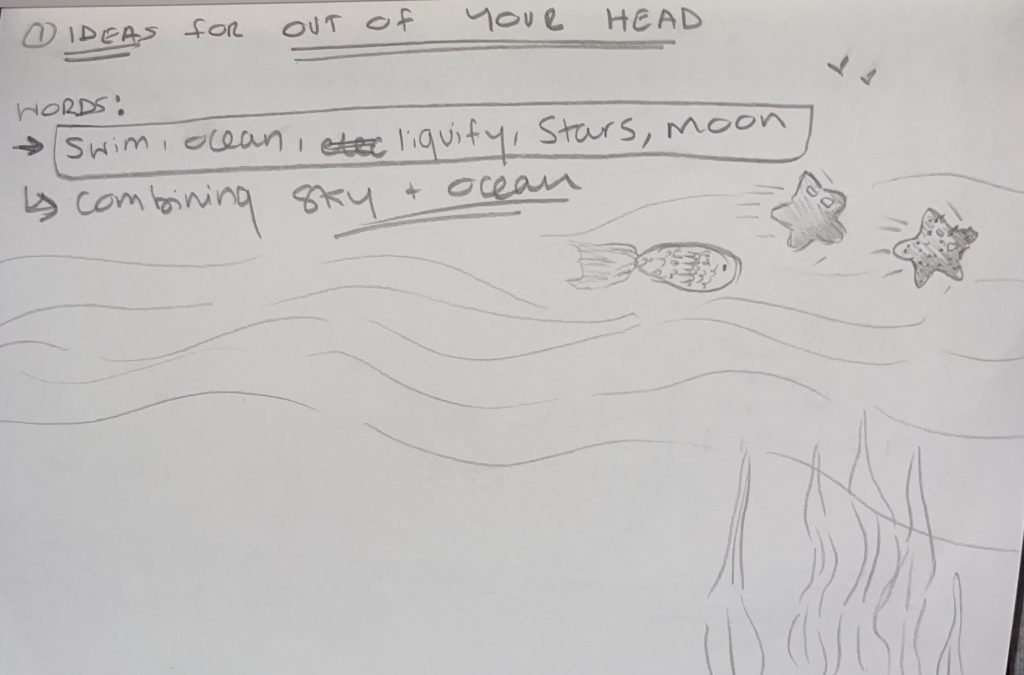 ① IDEAS FOR OUT OF YOUR HEAD
WORDS:
→ Swim, ocean, liquify, Stars, moon
↳ combining sky + ocean